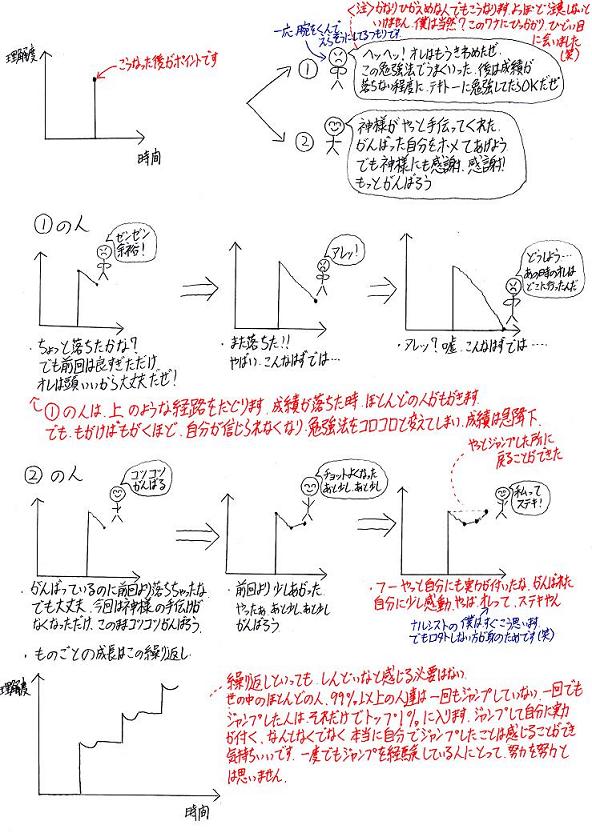 理解度
こうなった後がポイントです
時間
一応腕をくんで
えらそうにしてるつもりです
<注>かなりひかえめな人でもこうなります。よっぽど注意しないと
いけません。僕は当然？このワナにひっかかり、ひどい目
に会いました
(笑)
①
ヘッヘッ！オレはもうきわめたぜ
この勉強法でうまくいった。後は成績が
落ちない程度に、テキトーに勉強してたらOKだぜ
②
神様がやっと手伝ってくれた。
がんばった自分をホメてあげよう
でも神様にも感謝、感謝！
もっとがんばろう
①の人
ゼンゼン
余裕！
アレッ！
どうしよう…
あの時のオレは
どこに行ったんだ
・ちょっと落ちたかな？
でも前回は良すぎただけ
オレは頭いいから大丈夫だぜ！
・また落ちた！！
やばい、こんなはずでは…
・アレッ？嘘、こんなはずでは…
①の人は、上のような経路をたどります。成績が落ちた時、ほとんどの人がもがきます
でも、もがけばもがくほど、自分が信じられなくなり、勉強法をコロコロと変えてしまい、成績は急降下。
②の人
コツコツ
がんばる
チョットよくなった
あと少し、あと少し
やっとジャンプした所に
戻ることができた
私って
ステキ！
・がんばっているのに前回より落ちちゃったな
でも大丈夫、今回は神様の手伝いが
なくなっただけ、このままコツコツがんばろう。
・前回より少しあがった
やったぁ あと少し、あと少し
がんばろう。
・フーやっと自分にも実力が付いたな、がんばれた
自分に少し感動。やば、オレって、ステキやん
ナルシストの僕はすぐこう思います
でも口外しない方が身のためです(笑)
・ものごとの成長はこの繰り返し
理解度
時間
繰り返しといっても、しんどいなと感じる必要はない
世の中のほとんどの人、99%以上の人達は一回もジャンプしていない。一回でも
ジャンプした人は、それだけでトップ1%に入ります。ジャンプして自分に実力
が付く、なんとなくでなく本当に自分でジャンプしたことは感じることができ
気持ちいいです。一度でもジャンプを経験している人にとって、努力を努力と
は思いません。